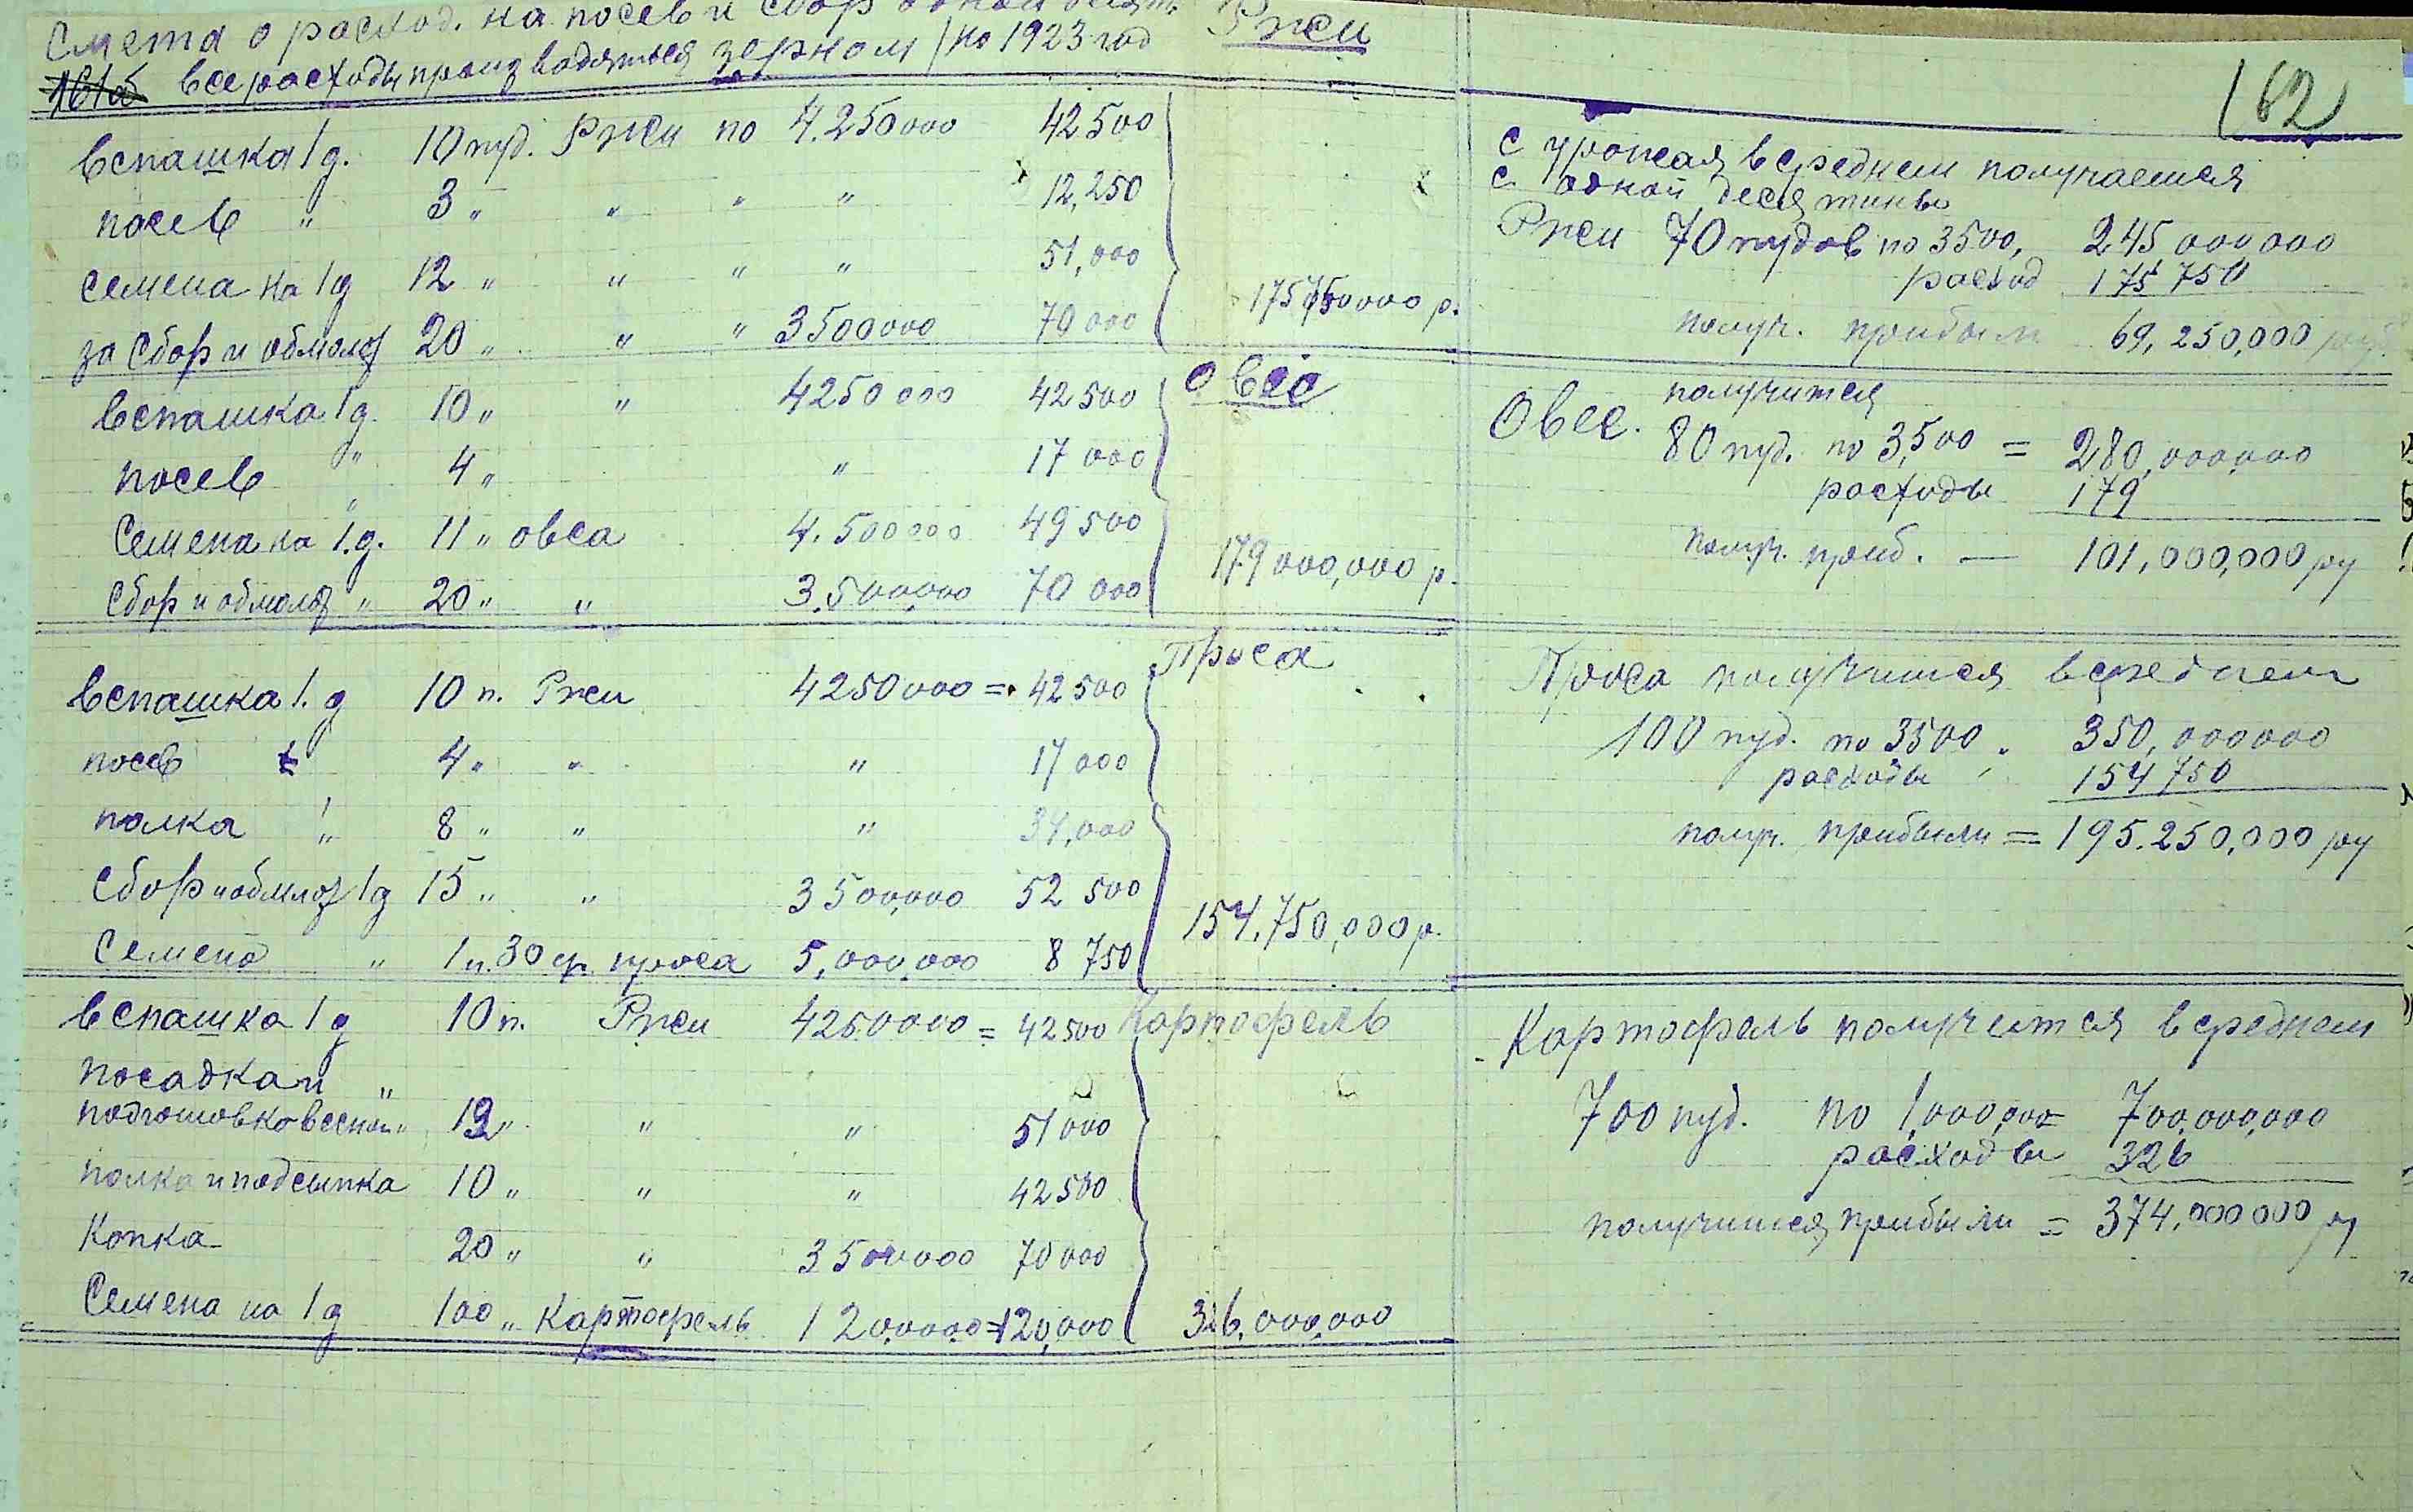 Смета о расход. на посев и сбор одной десят. Ржи
все расходы производяться зерном / на 1923 год
162
вспашка 1 д. 10 пуд. Ржи по 4.250000 42500
посев " 3 " " " " 12,250
семена на 1 д 12 " " " " 51,000
за сбор и обмолот 20 " " " 3500000 70 000
175750000 р.
Овес
вспашка 1 д. 10 " " 4250000 42500
посев " 4 " " 17 000
Семена на 1.д. 11 " овса 4.500000 49500
сбор и обмолот " 20 " " 3.500,000 70 000
179000,000 р.
Проса
вспашка 1. д 10 п. Ржи 4250000 = 42500
посев 4 " " " 17 000
полка " 8 " " " 34,000
сбор и обмлот 1 д 15 " " 3500,000 52 500
Семена " 1 п. 30 ф. проса 5,000,000 8 750
154.750,000 р.
Картофель
вспашка 1 д 10 п. Ржи 4250000 = 42500
посадка и "
подготовка весной " 12 " " " 51000
полка и подсыпка 10 " " " 42500
Копка 20 " " 3500000 70000
Семена на 1 д 100 " Картофель 1200000 = 120,000
326,000,000
С урожая в среднем получается
с одной десятины
Ржи 70 пудов по 3500, 245 000000
расход 175 750
получ. прибыли 69,250,000 руб.
получится
Овес. 80 пуд. по 3,500 = 280,000,000
расходы 179
получ. приб. — 101,000,000 ру
Проса получится в среднем
100 пуд. по 3500 350,000000
расходы 154 750
получ. прибыли = 195.250,000 ру
Картофель получится в среднем
700 пуд. по 1,000,000 = 700,000,000
расходы 326
получится прибыли = 374,000000 ру